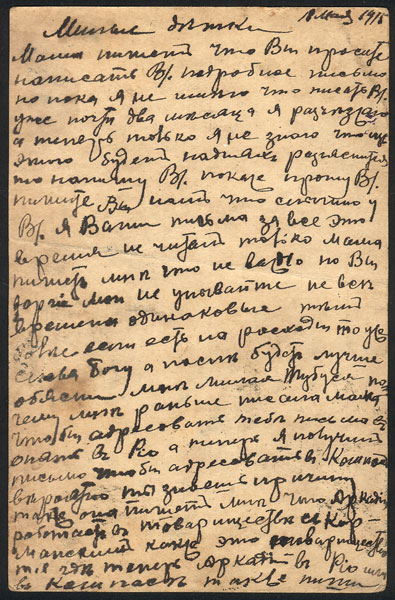 8 Мая 1915
Милые детки
Маша пишет что Вы просите
написать Вы подробное письмо
но пока я не имею что писать Вы
уже почти два месяца я разъезжаю
а теперь только я не знаю что из
этого будет на днях разъяснится
то напишу Вы пока прошу Вы
пишите Вы что слышно у
Вы я Ваши письма за все это
время не читал только Маша
пишет мне что не важно но Вы
дорогие мои не унывайте не все
времена одинаковые
если есть на расходы то уже
слава Богу а после будет лучше
объясни мне милая по
чему мне раньше писала Маша
чтобы адресовать тебе письмо в
опять в а теперь я получил
письмо чтобы адресовать в
вероятно ты знаешь причину
также она пишет мне что Аркадий
работает в товариществе с Кор-
манский какое это товарищество
и где теперь Аркадий в или
в также пиши